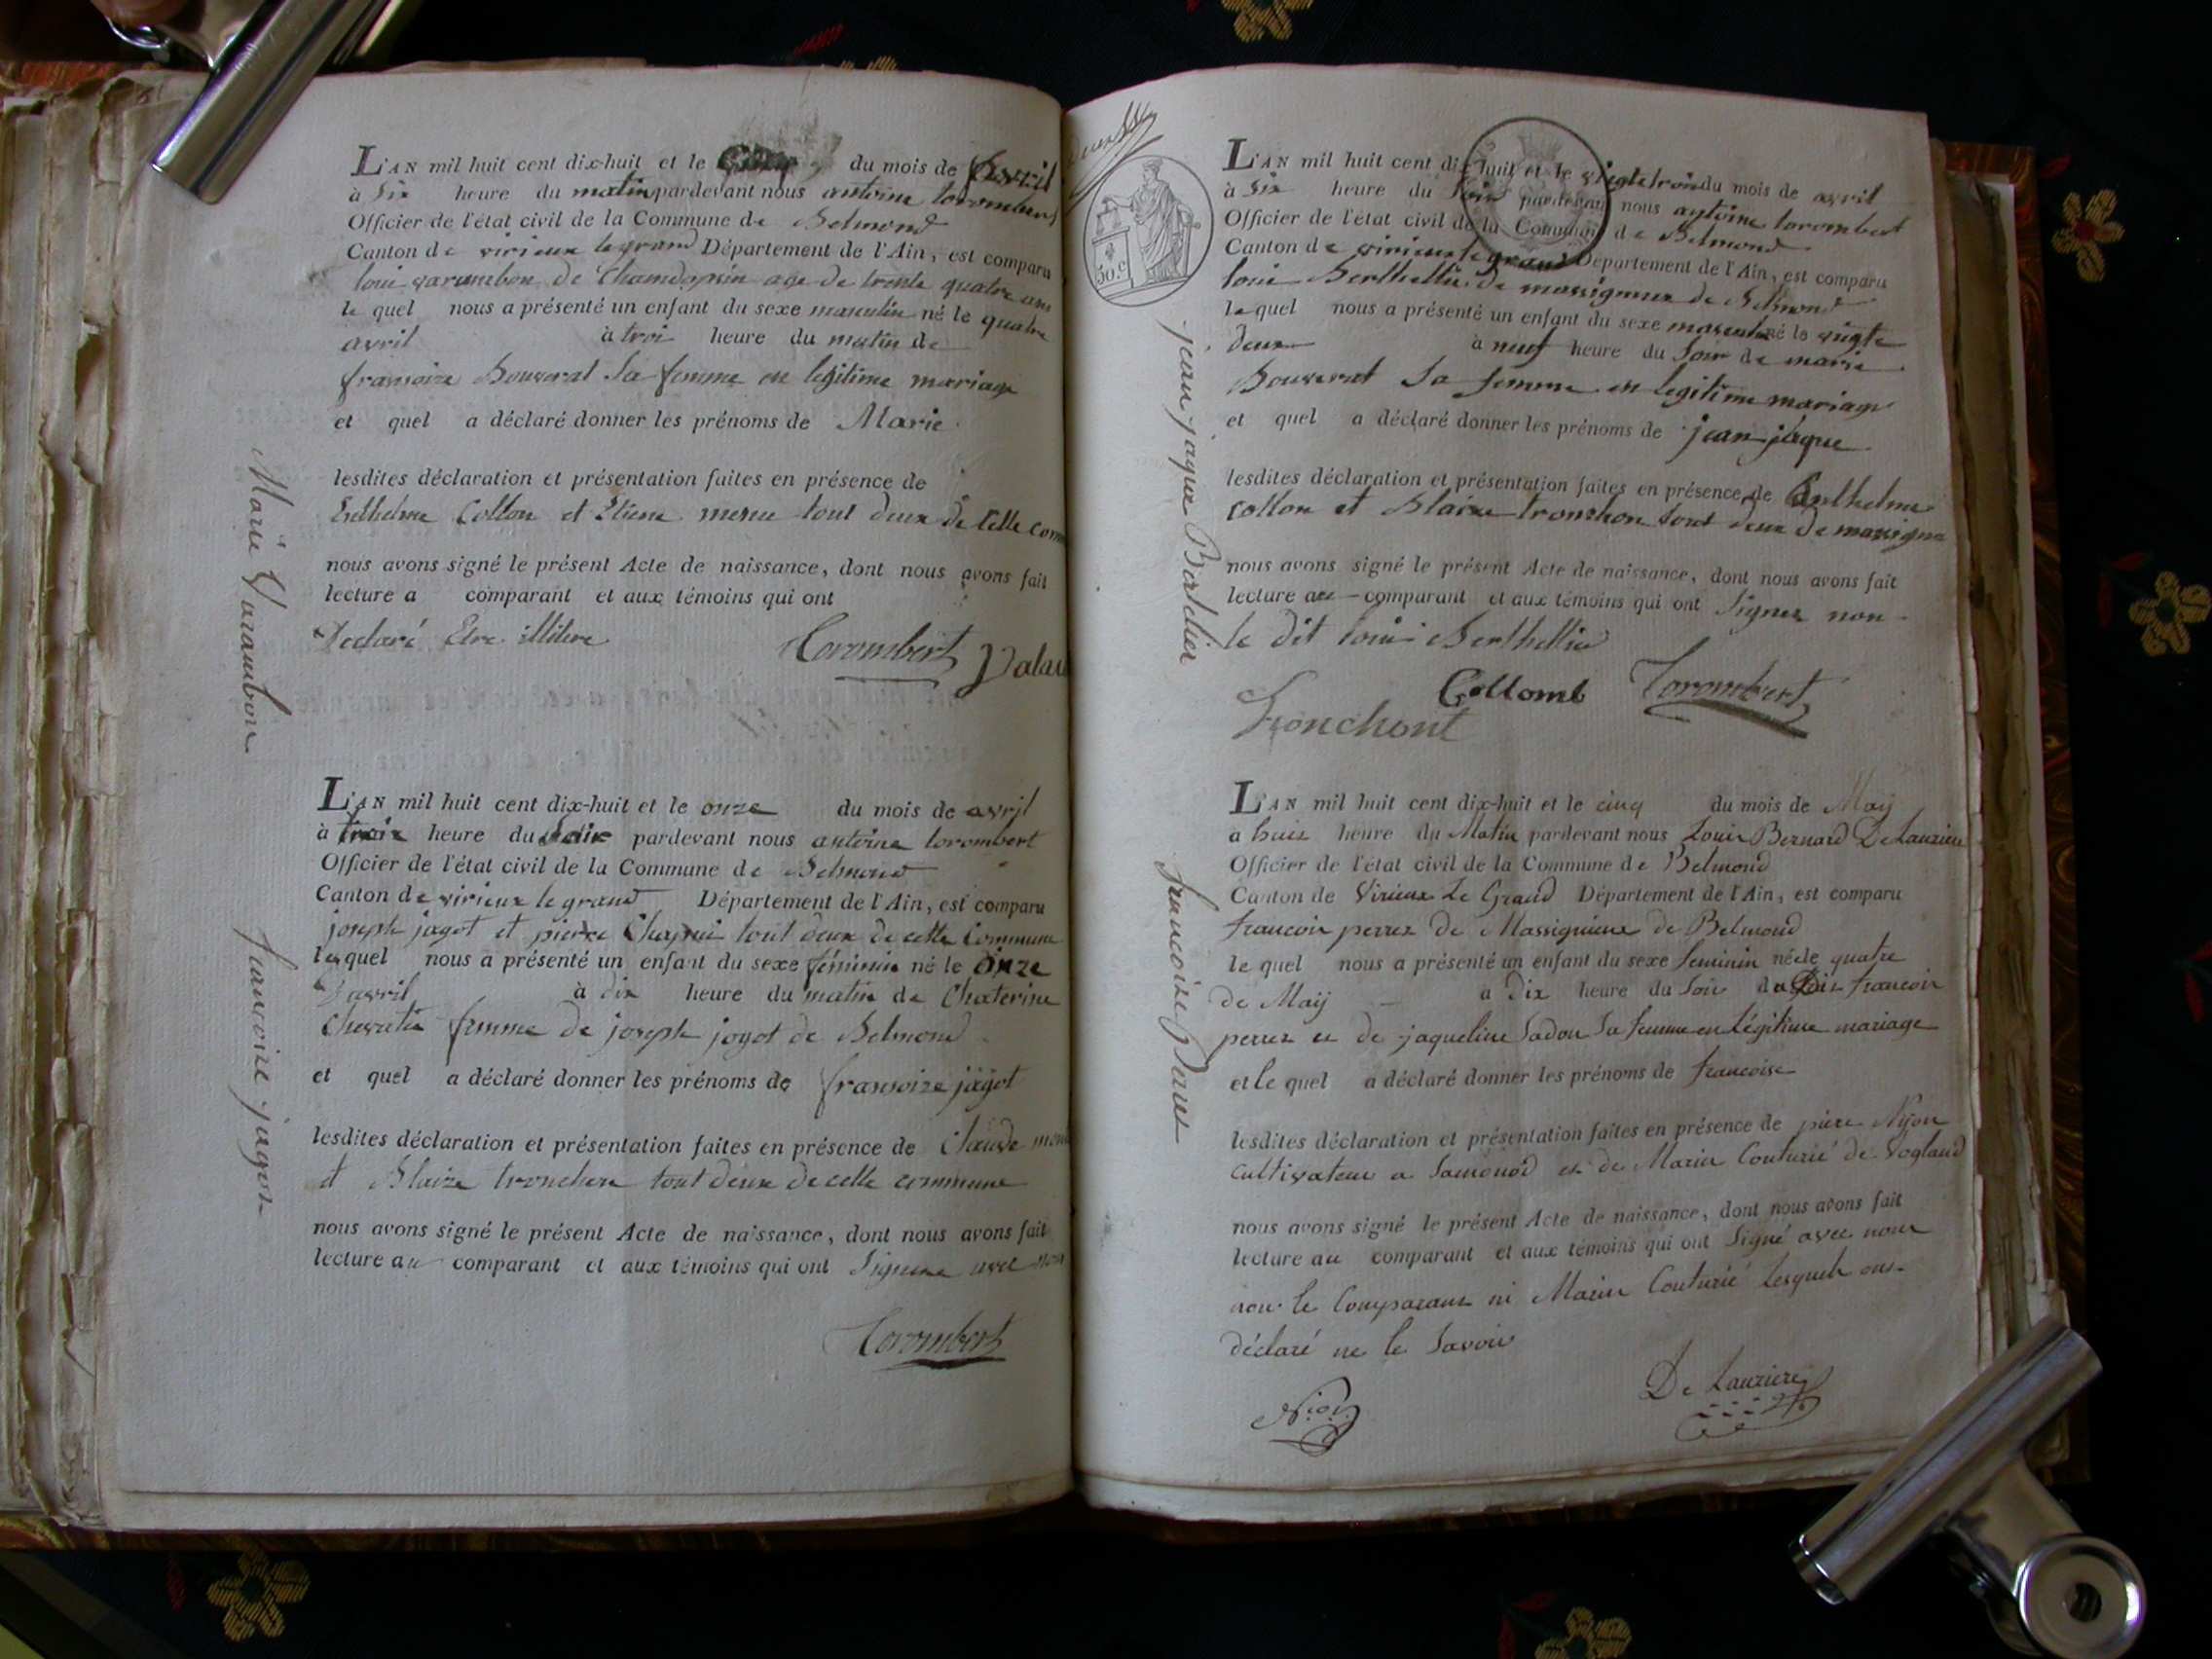 L'AN mil huit cent dix-huit et le du mois de avril
à Six heure du matin pardevant nous antoine torombert
Officier de l'état civil de la Commune de Belmond
Canton de virieux le grand Département de l'Ain, est comparu
loui varambon de Chamdossin age de trente quatre ans
le quel nous a présenté un enfant du sexe masculin né le quatre
avril à troi heure du matin de
fransoize Bouverat Sa femme en legitime mariage
et quel a déclaré donner les prénoms de Marie
lesdites déclaration et présentation faites en présence de
Enthelme Collon et Etiene tout deux de Celle com
nous avons signé le présent Acte de naissance, dont nous avons fait
lecture a comparant et aux témoins qui ont
Declaré Etre illitere
Torombert
Marie Varambon
L'AN mil huit cent dix-huit et le onze du mois de avril
à trois heure du Soir pardevant nous antoine torombert
Officier de l'état civil de la Commune de Belmond
Canton de virieux le grand Département de l'Ain, est comparu
joseph jagot et pierre Chapui tout deux de cette Commune
lesquel nous a présenté un enfant du sexe féminin né le onze
avril à dix heure du matin de Chaterine
femme de joseph jogot de Belmond
et quel a déclaré donner les prénoms de fransoize jagot
lesdites déclaration et présentation faites en présence de Claude
et Blaize tronchon tout deux de cette commune
nous avons signé le présent Acte de naissance, dont nous avons fait
lecture au comparant et aux témoins qui ont Signere avec nou
Torombert
francoize jagot
50 c.
L'AN mil huit cent dix-huit et le vigtetrois du mois de avril
à Six heure du Soir pardevant nous antoine torombert
Officier de l'état civil de la Commune de Belmond
Canton de virieux le grand Département de l'Ain, est comparu
loui Berthellier de massigneux de Belmond
le quel nous a présenté un enfant du sexe masculin né le vigte
deux à neuf heure du Soir de marie
Bouverat Sa femme en legitime mariage
et quel a déclaré donner les prénoms de jean jaque
lesdites déclaration et présentation faites en présence de Anthelme
collon et Blaize tronchon tout deux de massigne
nous avons signé le présent Acte de naissance, dont nous avons fait
lecture au comparant et aux témoins qui ont Signer non
le dit loui Berthellier
Collomb Torombert
Tronchont
jean jaque
L'AN mil huit cent dix-huit et le cinq du mois de Maÿ
a huit heure du Matin pardevant nous Louis Bernard De Lauziere
Officier de l'état civil de la Commune de Belmond
Canton de Virieux Le Grand Département de l'Ain, est comparu
francois perret de Massignieux de Belmond
le quel nous a présenté un enfant du sexe feminin née le quatre
de Maÿ a Dix heure du Soir du Dit francois
perret et de jaqueline Sadou Sa femme en Légitime mariage
et le quel a déclaré donner les prénoms de francoise
lesdites déclaration et présentation faites en présence de piere Nijon
cultivateur a Samonod et de Marin Couturié de Vogland
nous avons signé le présent Acte de naissance, dont nous avons fait
lecture au comparant et aux témoins qui ont Signé avec nous
non le Comparant ni Marin Couturié Lesquels ont
déclaré ne le Savoir
De Lauziere
francoise